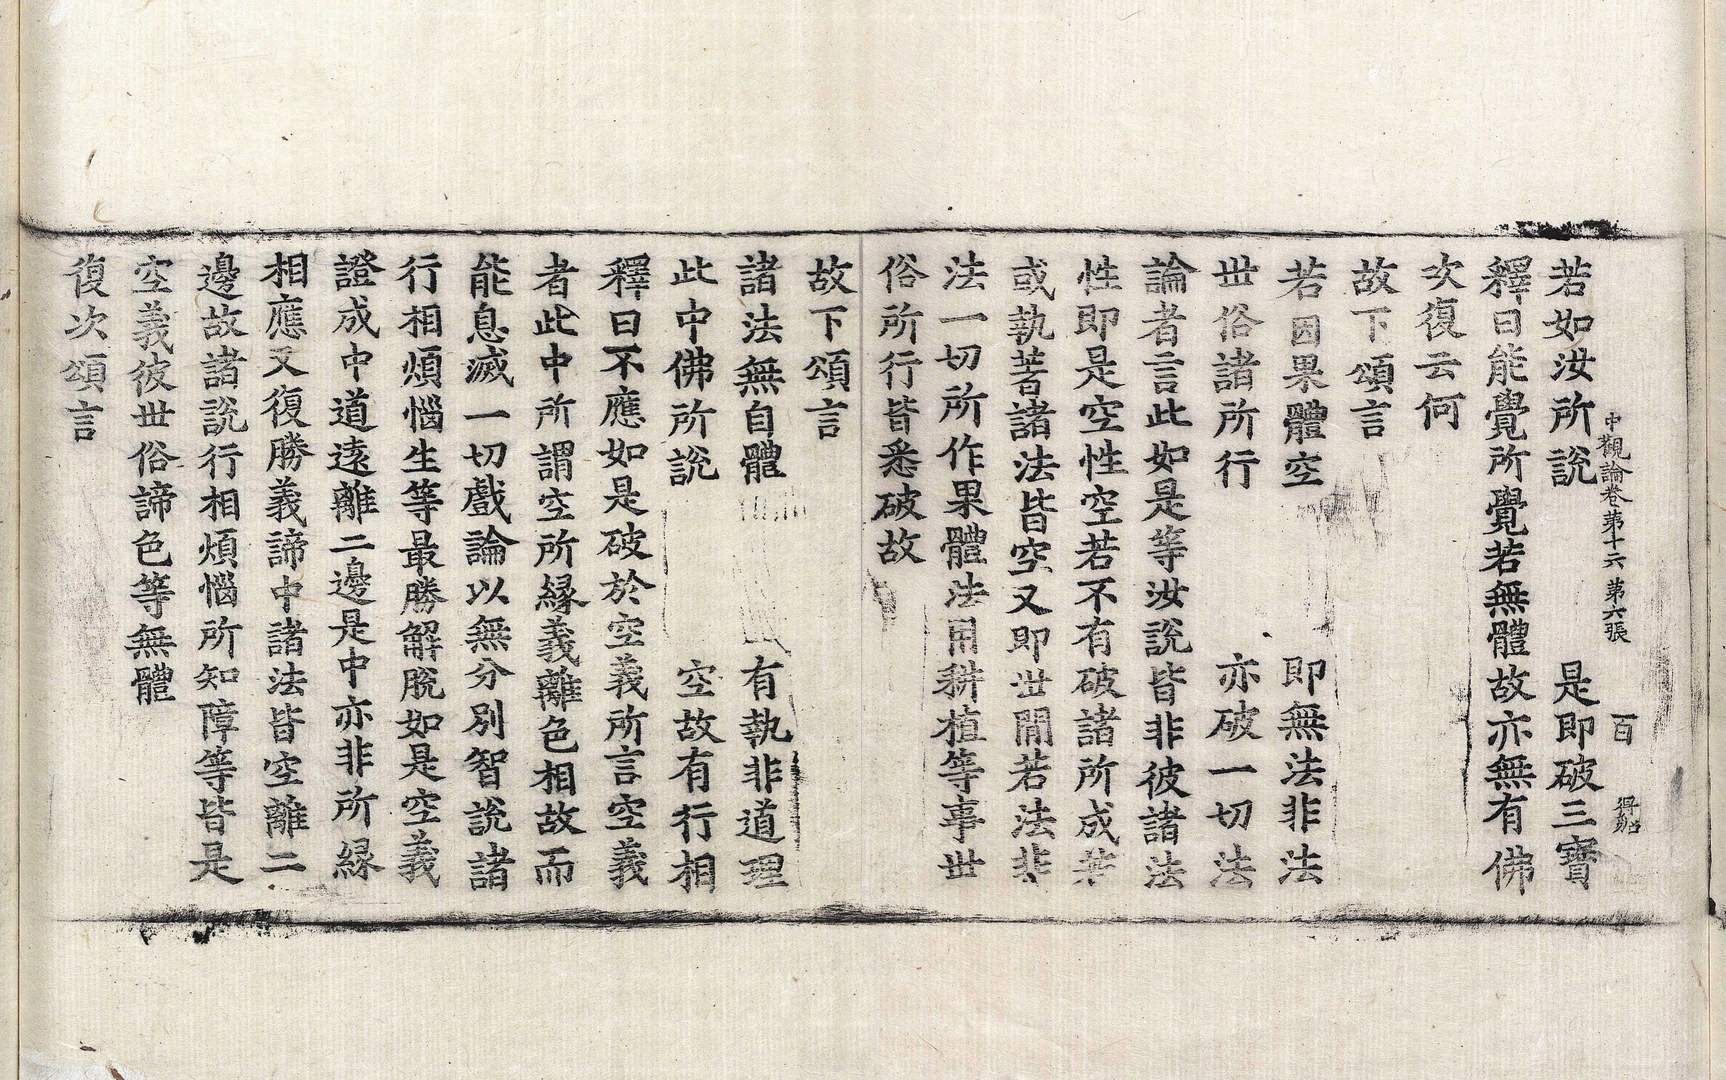 中觀論卷第十六 第六張 百 得

若如汝所說 是即破三寶
釋曰能覺所覺若無體故亦無有佛
次復云何
故下頌言
若因果體空 即無法非法
世俗諸所行 亦破一切法
論者言此如是等汝說皆非彼諸法
性即是空性空若不有破諸所成若
或執著諸法皆空又即世間若法非
法一切所作果體法用耕植等事世
俗所行皆悉破故
故下頌言
諸法無自體 有執非道理
此中佛所說 空故有行相
釋曰不應如是破於空義所言空義
者此中所謂空所緣義離色相故而
能息滅一切戲論以無分別智說諸
行相煩惱生等最勝解脫如是空義
證成中道遠離二邊是中亦非所緣
相應又復勝義諦中諸法皆空離二
邊故諸說行相煩惱所知障等皆是
空義彼世俗諦色等無體
復次頌言